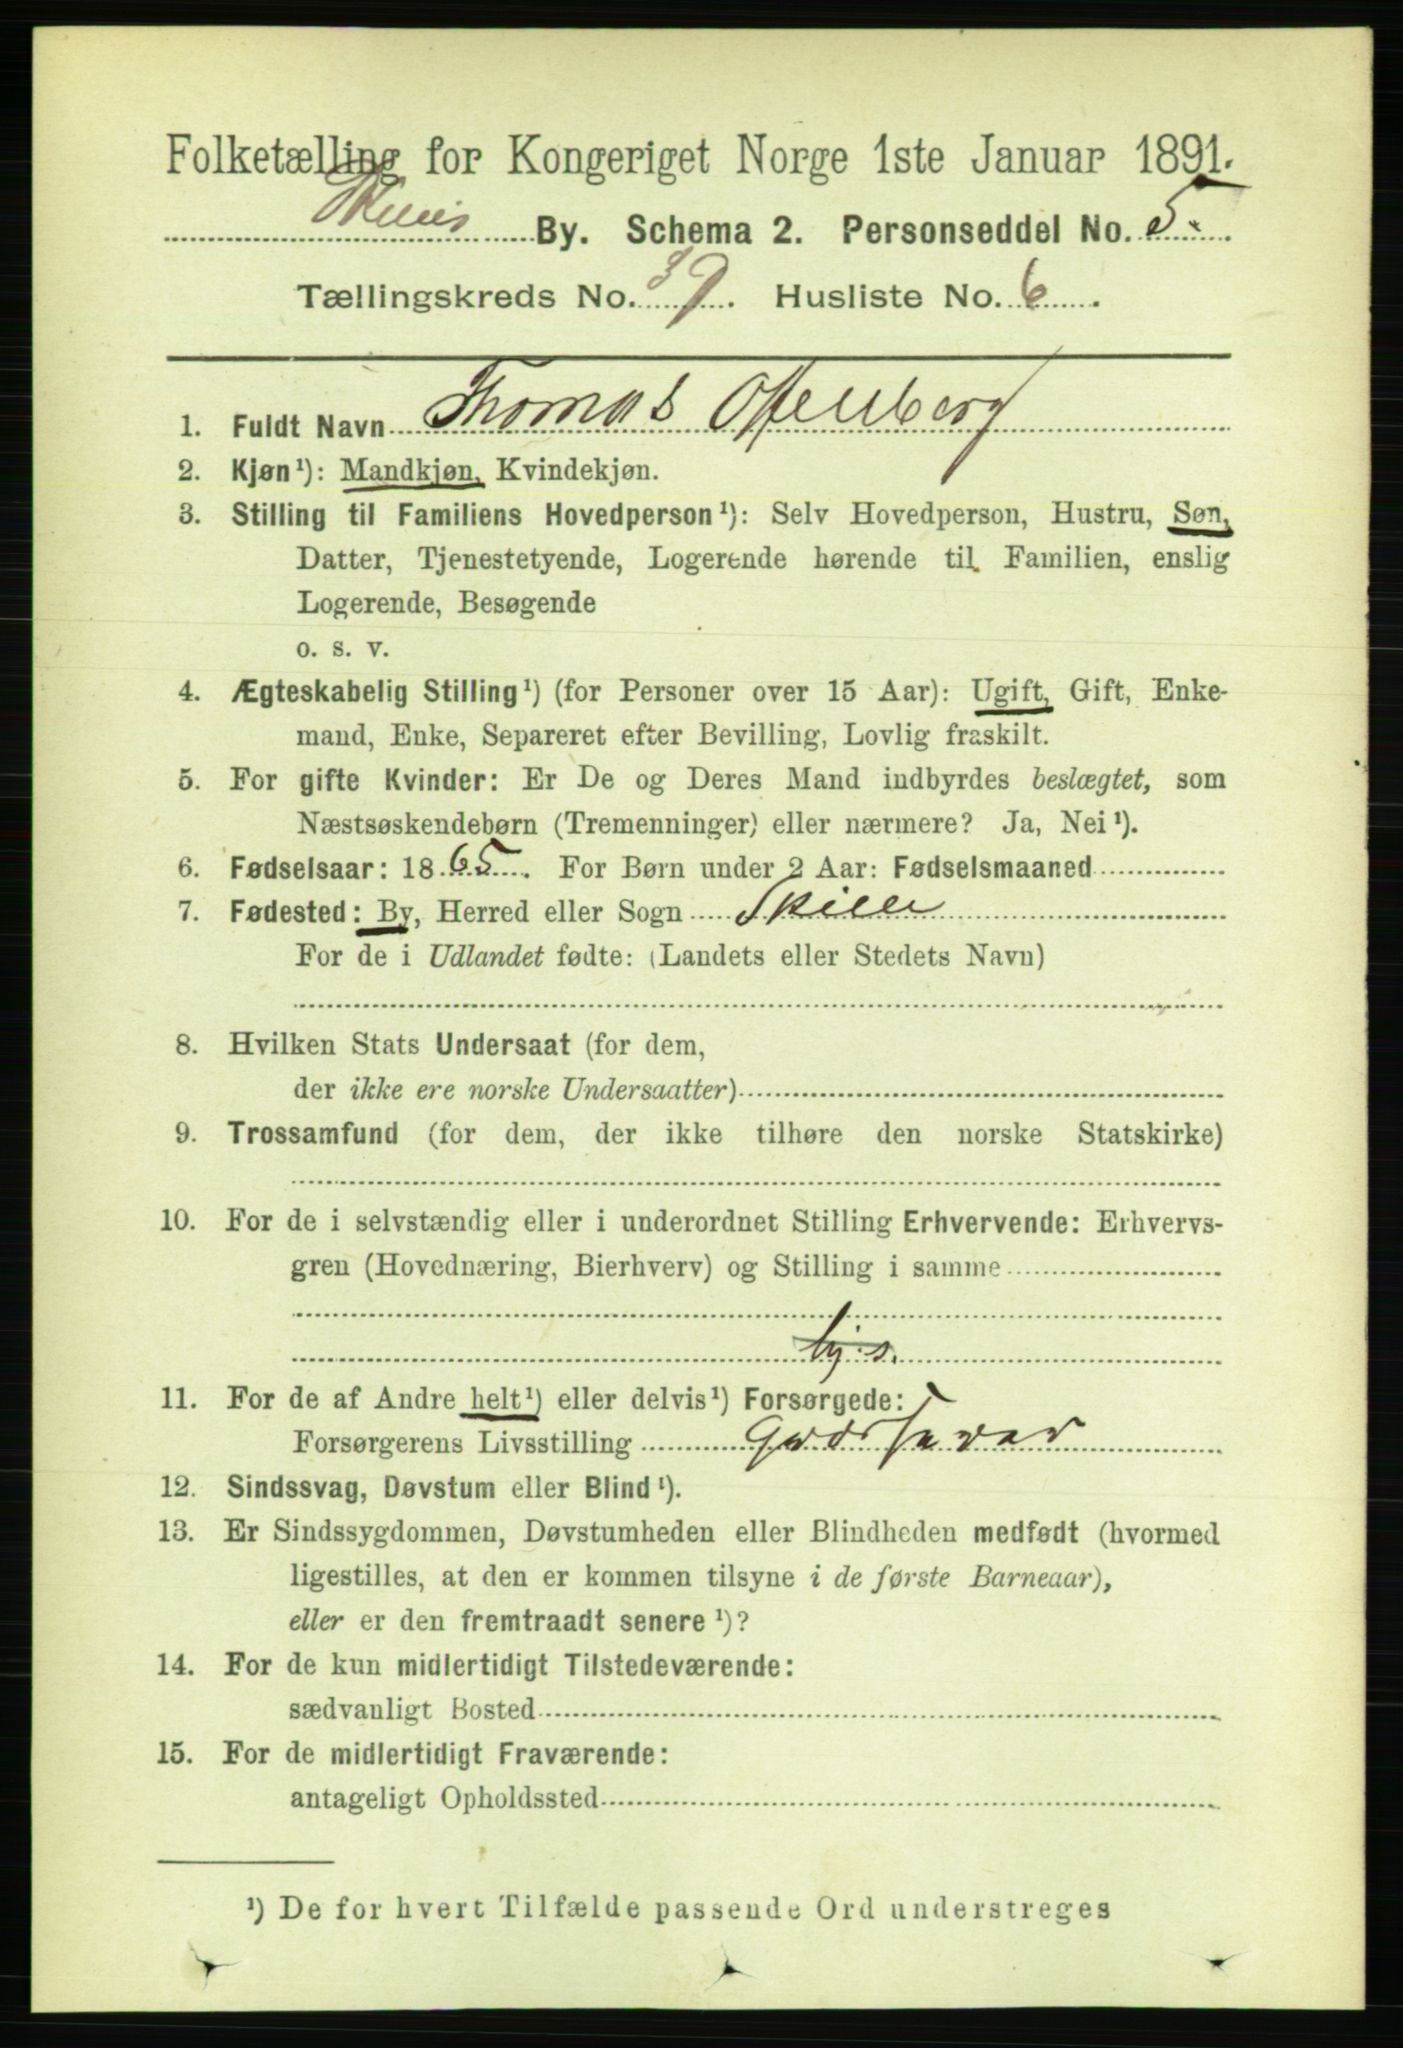 Folketælling for Kongeriget Norge 1ste Januar 1891.
By. Schema 2. Personseddel No. 5.
Tællingskreds No. 39. Husliste No. 6.
1. Fuldt Navn Thomas Oftenberg
2. Kjøn¹): Mandkjøn, Kvindekjøn.
3. Stilling til Familiens Hovedperson¹): Selv Hovedperson, Hustru, Søn,
Datter, Tjenestetyende, Logerende hørende til Familien, enslig
Logerende, Besøgende
o. s. v.
4. Ægteskabelig Stilling¹) (for Personer over 15 Aar): Ugift, Gift, Enke-
mand, Enke, Separeret efter Bevilling, Lovlig fraskilt.
5. For gifte Kvinder: Er De og Deres Mand indbyrdes beslægtet, som
Næstsøskendebørn (Tremenninger) eller nærmere? Ja, Nei¹).
6. Fødselsaar: 1865. For Børn under 2 Aar: Fødselsmaaned
7. Fødested: By, Herred eller Sogn Skien
For de i Udlandet fødte: (Landets eller Stedets Navn)
8. Hvilken Stats Undersaat (for dem,
der ikke ere norske Undersaatter)
9. Trossamfund (for dem, der ikke tilhøre den norske Statskirke)
10. For de i selvstændig eller i underordnet Stilling Erhvervende: Erhvervs-
gren (Hovednæring, Bierhverv) og Stilling i samme
11. For de af Andre helt¹) eller delvis¹) Forsørgede:
Forsørgerens Livsstilling
12. Sindssvag, Døvstum eller Blind¹).
13. Er Sindssygdommen, Døvstumheden eller Blindheden medfødt (hvormed
ligestilles, at den er kommen tilsyne i de første Barneaar),
eller er den fremtraadt senere¹)?
14. For de kun midlertidigt Tilstedeværende:
sædvanligt Bosted
15. For de midlertidigt Fraværende:
antageligt Opholdssted
¹) De for hvert Tilfælde passende Ord understreges